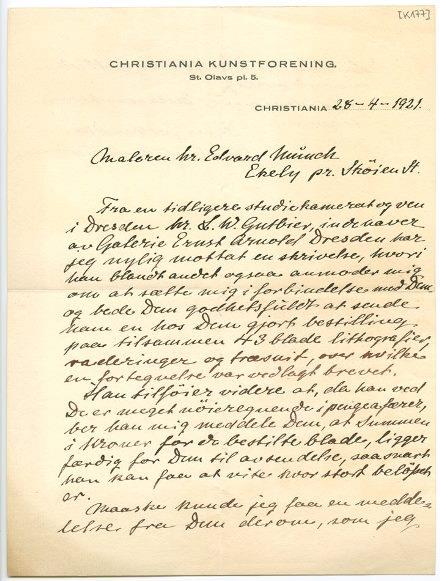 [K177]
CHRISTIANIA KUNSTFORENING.
St. Olavs pl. 5.
CHRISTIANIA 28-4-1921.
Maleren hr. Edvard Munch
Ekely pr. Skøien St.
Fra en tidligere studiekamerat og ven
i Dresden hr. L. W. Gutbier, indehaver
av Galerie Ernst Arnold Dresden har
jeg nylig mottat en skrivelse, hvori
han blandt andet ogsaa anmoder mig
om at sætte mig i forbindelse med Dem
og bede Dem godhetsfuldt at sende
ham en hos Dem gjort bestilling
paa tilsammen 43 blade lithografier,
raderinger og træsnit, over hvilke
en fortegnelse var vedlagt brevet.
Han tilføier videre at, da han ved
De er meget nøieregnende i pengeafærer,
ber han mig meddele Dem, at summen
i kroner for de bestilte blade, ligger
færdig for Dem til avsendelse, saasnart
han kan faa at vite hvor stort beløpet
er.
Maaske kunde jeg faa en medde-
lelse fra Dem derom, som jeg